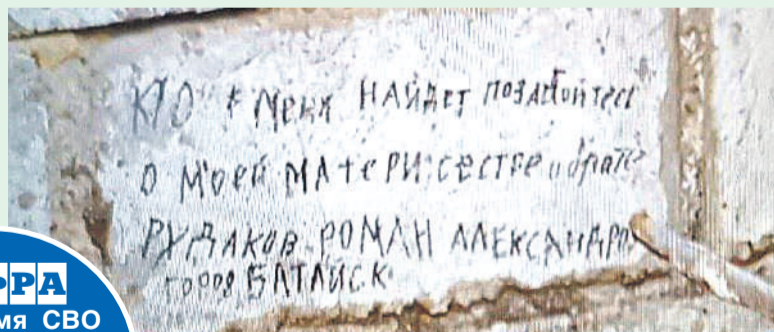 КТО меня НАЙДЕТ позаботтесь
о моей МАтеРИ. сестре и брате
РУДАКОВ РОМАН АЛЕКСАНДРО
город БАТАЙСК
ФРА
мя СВО